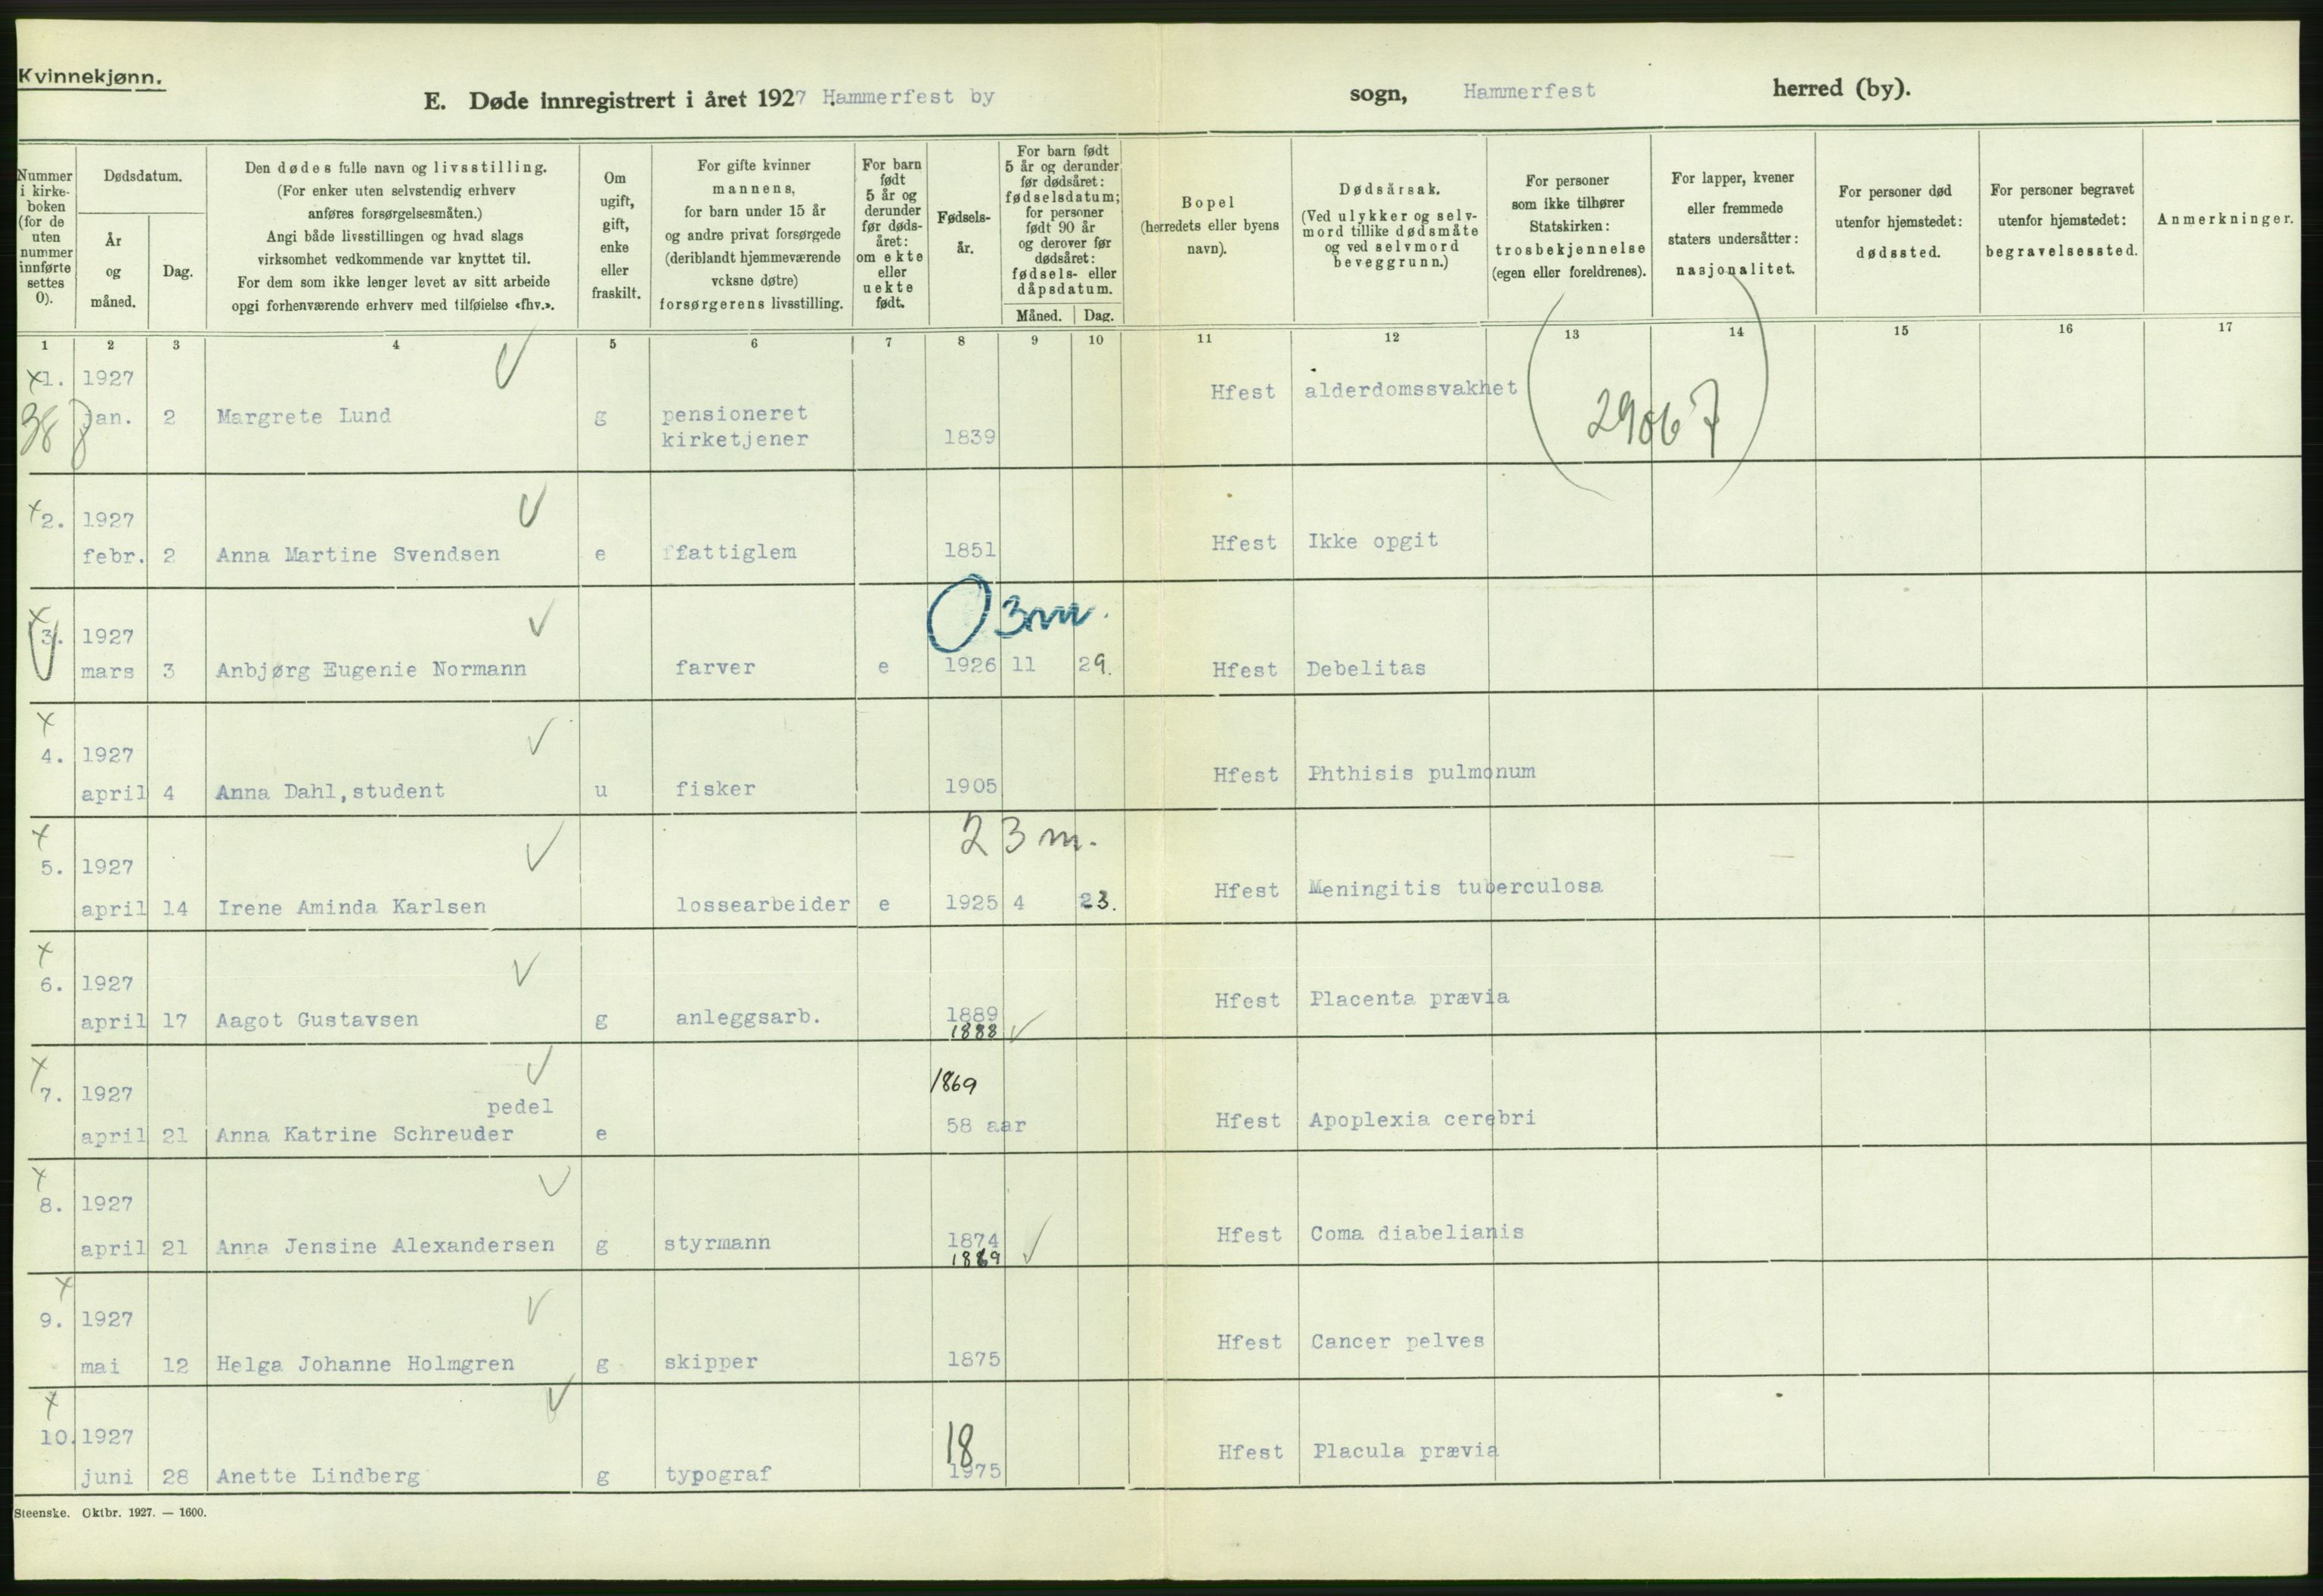 Kvinnekjønn.
E. Døde innregistrert i året 1927 Hammerfest by sogn, Hammerfest herred (by).
Nummer i kirke- boken (for de uten nummer innførte settes 0).
Dødsdatum.
År og måned.
Dag.
Den dødes fulle navn og livsstilling.
(For enker uten selvstendig erhverv
anføres forsørgelsesmåten.)
Angi både livsstillingen og hvad slags
virksomhet vedkommende var knyttet til.
For dem som ikke lenger levet av sitt arbeide
opgi forhenværende erhverv med tilføielse «fhv.».
Om ugift, gift, enke eller fraskilt.
For gifte kvinner
mannens,
for barn under 15 år
og andre privat forsørgede
(deriblandt hjemmeværende
vcksne døtre)
forsørgerens livsstilling.
For barn født 5 år og derunder før døds- året: om ekte eller uekte født.
Fødsels- år.
For barn født
5 år og derunder
før dødsåret:
fødselsdatum;
for personer
født 90 år
og derover før
dødsåret:
fødsels- eller
dåpsdatum.
Måned. Dag.
Bopel
(herredets eller byens
navn).
Dødsårsak.
(Ved ulykker og selv-
mord tillike dødsmåte
og ved selvmord
beveggrunn.)
For personer
som ikke tilhører
Statskirken:
trosbekjennelse
(egen eller foreldrenes).
For lapper, kvener
eller fremmede
staters undersåtter:
nasjonalitet.
For personer død
utenfor hjemstedet:
dødssted.
For personer begravet
utenfor hjemstedet:
begravelsessted.
Anmerkninger.
1 2 3 4 5 6 7 8 9 10 11 12 13 14 15 16 17
x1. 1927 Hfest alderdomssvakhet
38 jan. 2 Margrete Lund g pensioneret 29067
kirketjener 1839
x2. 1927 Hfest Ikke opgit
febr. 2 Anna Martine Svendsen e ffattiglem 1851
0 3m.
x3. 1927
mars 3 Anbjørg Eugenie Normann farver e 1926 11 29. Hfest Debelitas
x
4. 1927 Hfest Phthisis pulmonum
april 4 Anna Dahl, student u fisker 1905
x 23 m.
5. 1927 Hfest Meningitis tuberculosa
april 14 Irene Aminda Karlsen lossearbeider e 1925 4 23.
x
6. 1927 Hfest Placenta prævia
april 17 Aagot Gustavsen g anleggsarb. 1889
1888
x 1869
7. 1927
pedel
april 21 Anna Katrine Schreuder e 58 aar Hfest Apoplexia cerebri
x
8. 1927 Hfest Coma diabelianis
april 21 Anna Jensine Alexandersen g styrmann 1874
1869
x
9. 1927 Hfest Cancer pelves
mai 12 Helga Johanne Holmgren g skipper 1875
x
10. 1927 18 Hfest Placula prævia
juni 28 Anette Lindberg g typograf 1975
Steenske. Oktbr. 1927. — 1600.